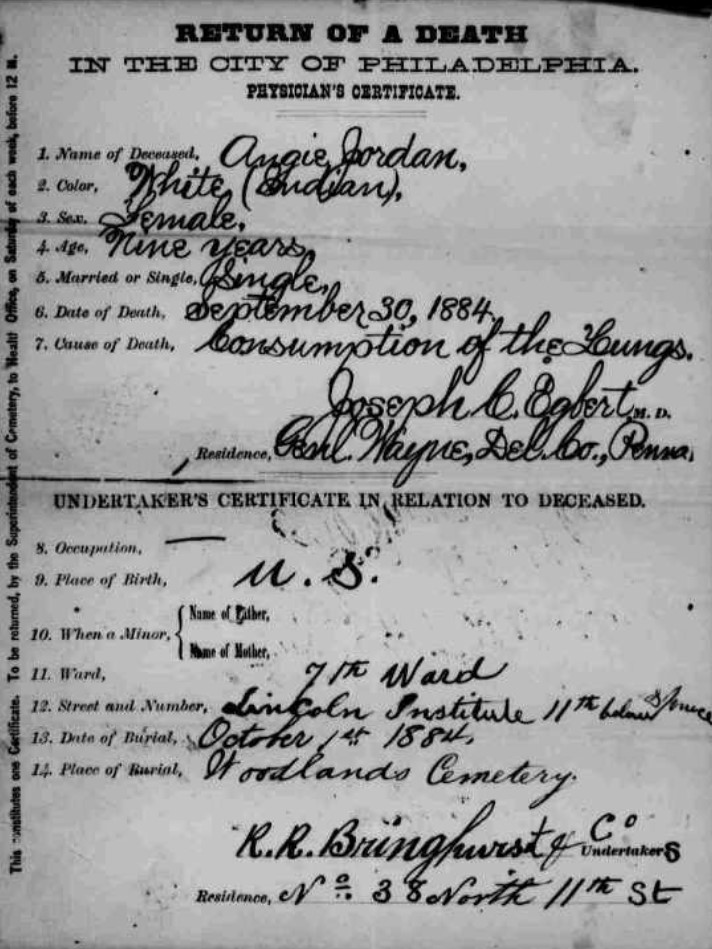 RETURN OF A DEATH
IN THE CITY OF PHILADELPHIA.
PHYSICIAN'S CERTIFICATE.
1. Name of Deceased, Angie Jordan,
2. Color, White, (Indian),
3. Sex, Female,
4. Age, Nine years,
5. Married or Single, Single,
6. Date of Death, September 30, 1884.
7. Cause of Death, Consumption of the Lungs.
Joseph C. Egbert M. D.
Residence, Genl. Wayne, Del. Co., Penna,
UNDERTAKER'S CERTIFICATE IN RELATION TO DECEASED.
8. Occupation, —
9. Place of Birth, U. S.
10. When a Minor, { Name of Father,
Name of Mother,
11. Ward, 7th Ward
12. Street and Number, Lincoln Institute 11th below Spruce
13. Date of Burial, October 1st 1884,
14. Place of Burial, Woodlands Cemetery.
R. R. Bringhurst & Co Undertakers
Residence, No. 38 North 11th St
This constitutes one Certificate. To be returned, by the Superintendent of Cemetery, to Health Office, on Saturday of each week, before 12 M.